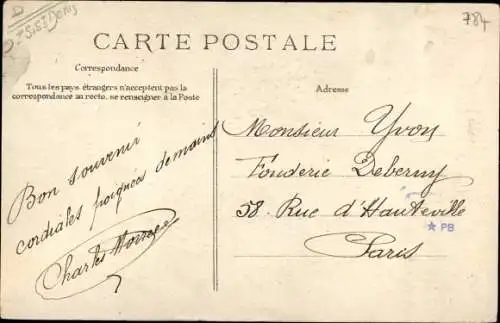 D
St Denis
784
CARTE POSTALE
Correspondance
Tous les pays étrangers n'acceptent pas la
correspondance au recto, se renseigner à la Poste
Adresse
Bon souvenir
cordiales poignées de mains
Charles
Monsieur Yvon
Fonderie Deberny
58 Rue d'Hauteville
Paris
PB